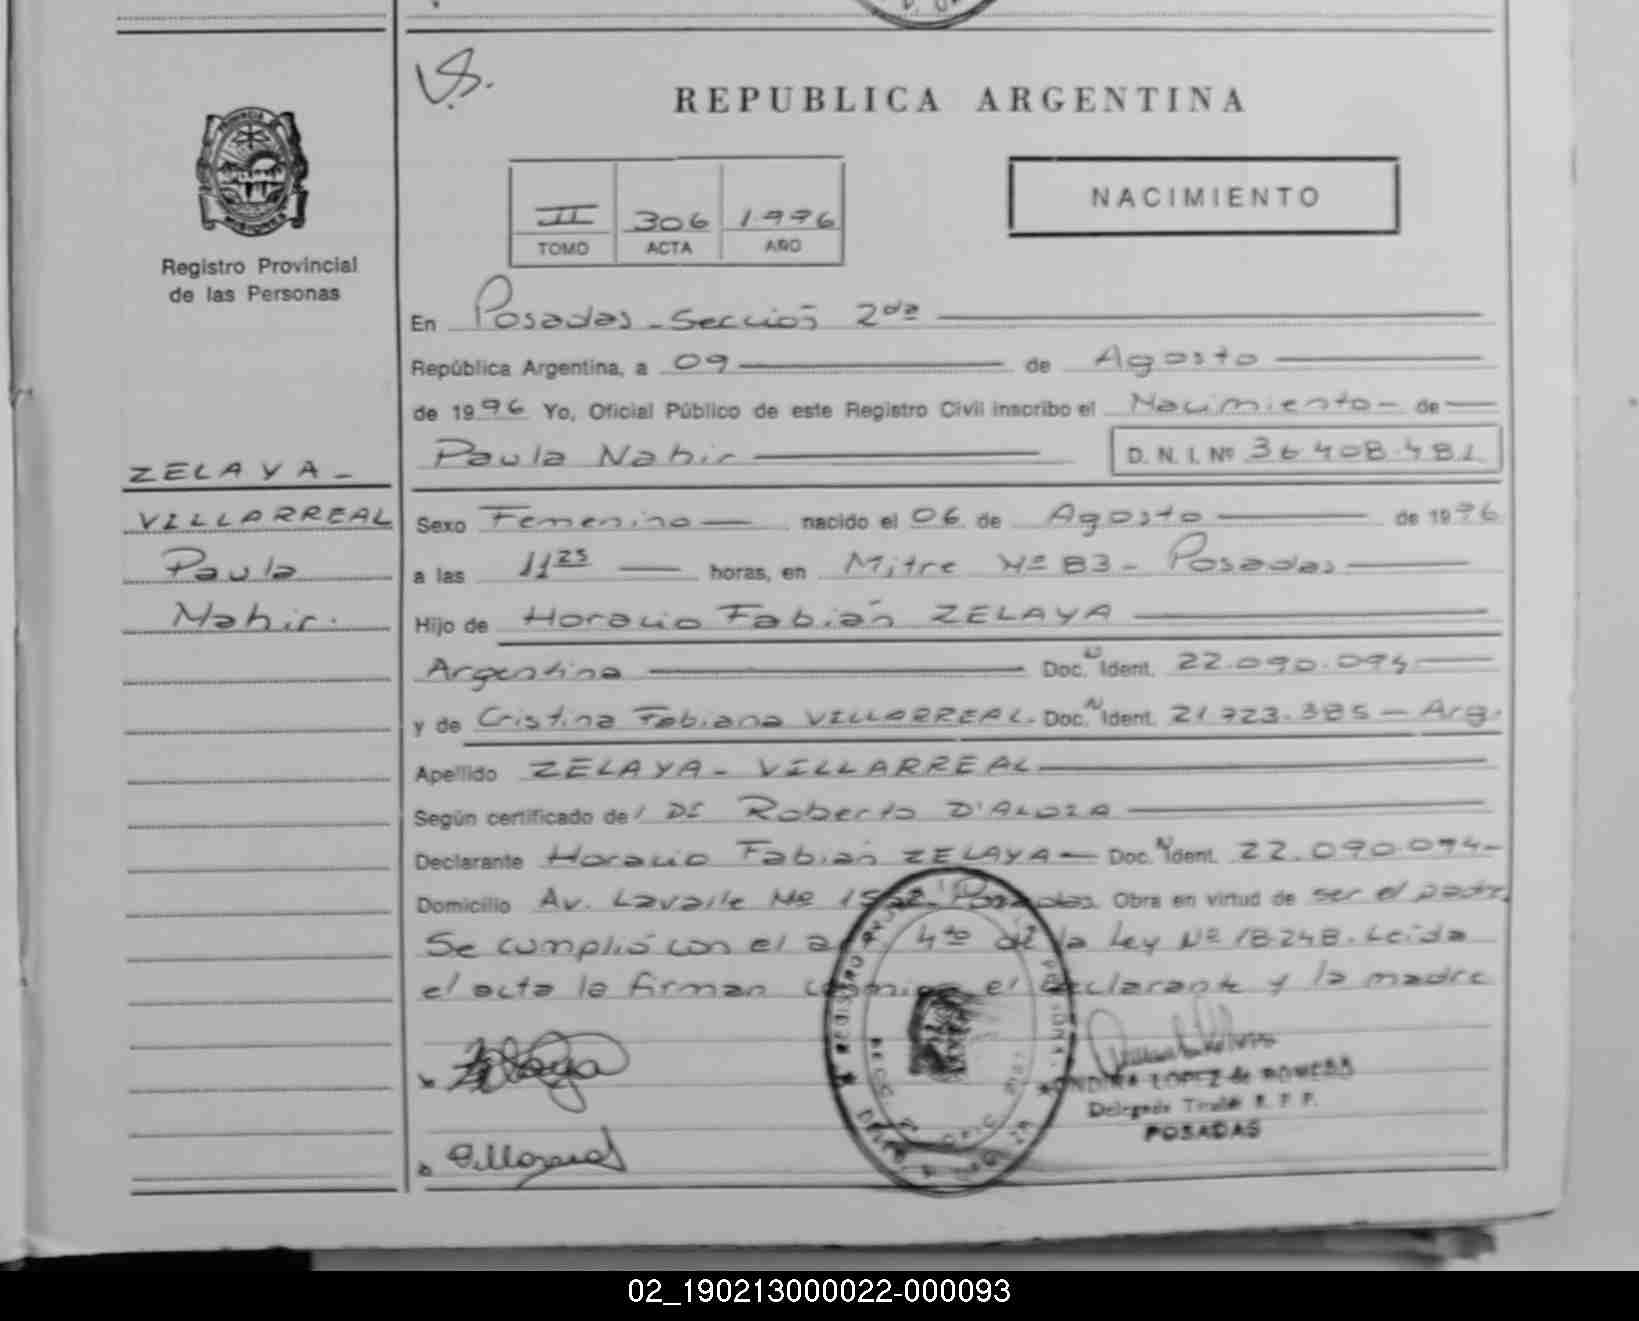 V.S.
REPUBLICA ARGENTINA
NACIMIENTO
II 306 1996
TOMO ACTA AÑO
Registro Provincial
de las Personas
En Posadas - Sección 2da
República Argentina, a 09 de Agosto
de 1996 Yo, Oficial Público de este Registro Civil inscribo el Nacimiento - de
Paula Nahir D. N. I. Nº 36.408.481
ZELAYA -
VILLARREAL
Paula
Nahir.
Sexo Femenino nacido el 06 de Agosto de 1996
a las 11 25 horas, en Mitre Nº 83 - Posadas
Hijo de Horacio Fabián ZELAYA
Argentina Doc. N Ident. 22.090.094
y de Cristina Fabiana VILLARREAL. Doc. N Ident. 21.723.385 - Arg.
Apellido ZELAYA - VILLARREAL
Según certificado del Dr Roberto D'ALOIA
Declarante Horacio Fabián ZELAYA - Doc. N Ident. 22.090.094 -
Domicilio Av. Lavalle Nº Posadas. Obra en virtud de ser el padre
Se cumplió con el 4to de la Ley Nº 18.248. Leída
el acta la firman conmigo el declarante y la madre
Zelaya
LOPEZ de
Delegada Titular R. P. P.
POSADAS
02_190213000022-000093